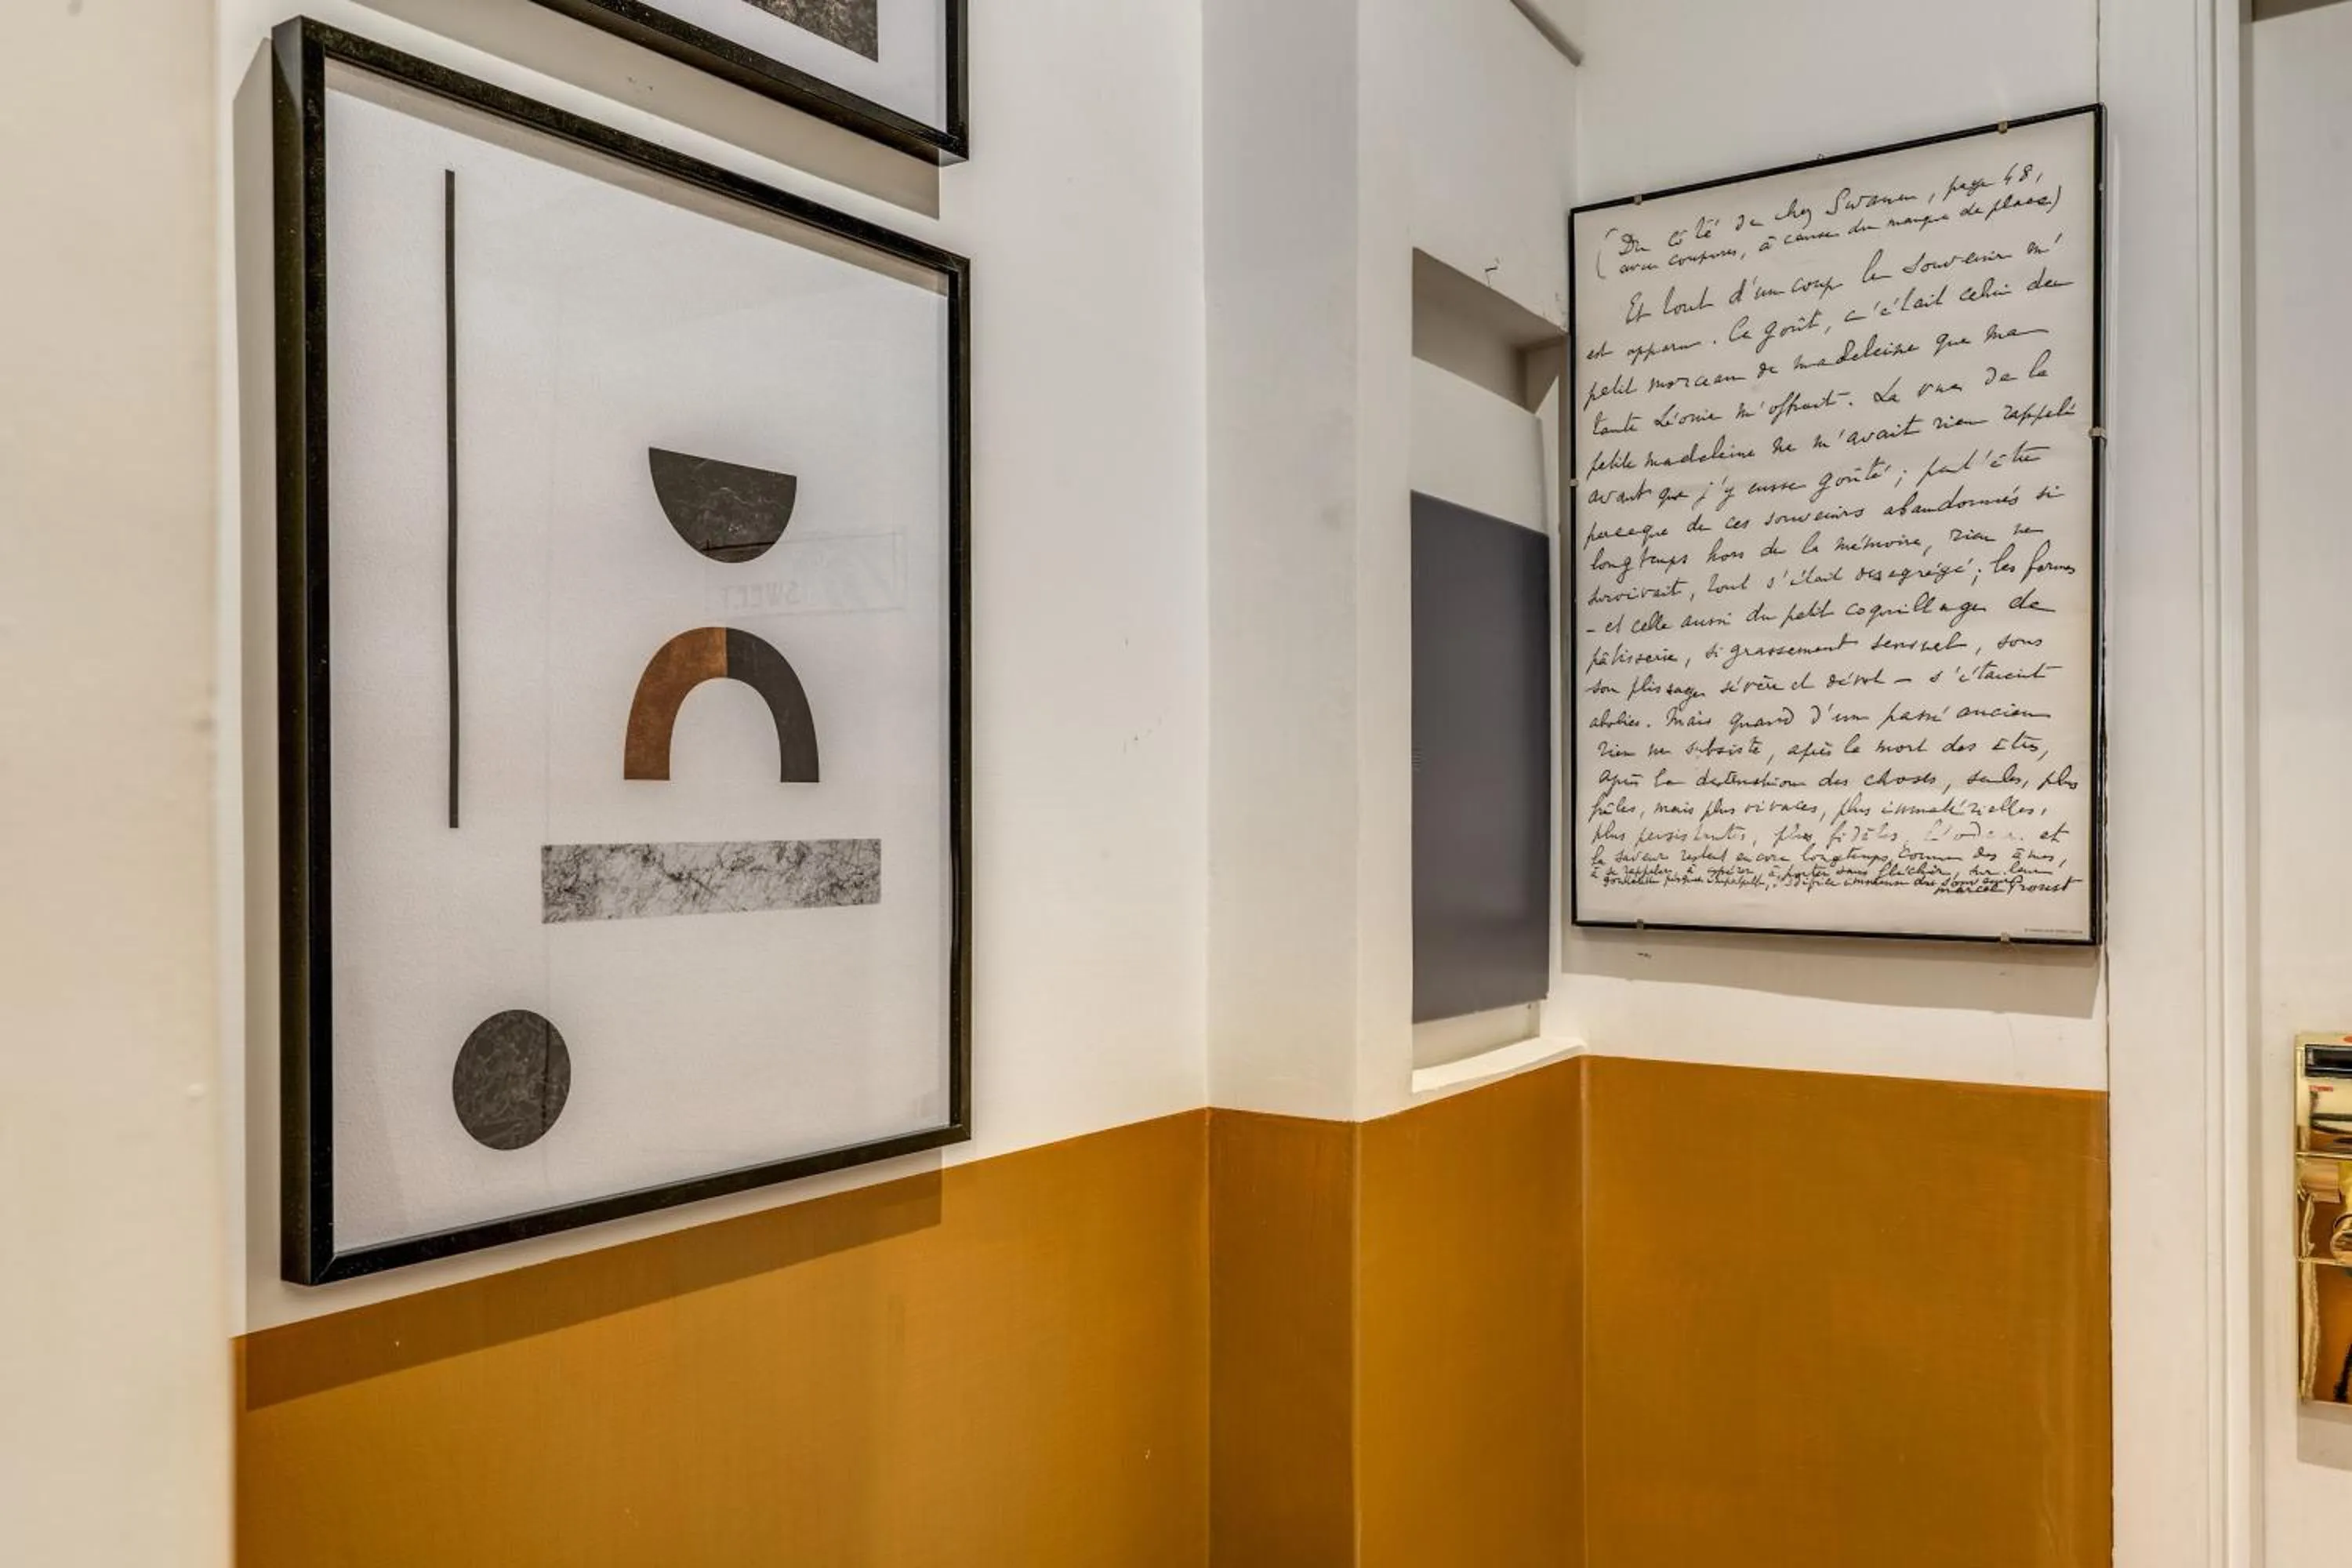 (Du côté de chez Swann, page 48,
avec coupures, à cause du manque de place)
Et tout d'un coup le souvenir m'
est apparu. Ce goût, c'était celui du
petit morceau de madeleine que ma
tante Léonie m'offrait. La vue de la
petite madeleine ne m'avait rien rappelé
avant que j'y eusse goûté; peut'être
parceque de ces souvenirs abandonnés si
longtemps hors de la mémoire, rien ne
survivait, tout s'était désagrégé; les formes
- et celle aussi du petit coquillage de
pâtisserie, si grassement sensuel, sous
son plissage sévère et dévot - s'étaient
abolies. Mais quand d'un passé ancien
rien ne subsiste, après la mort des êtres,
après la destruction des choses, seules, plus
frêles, mais plus vivaces, plus immatérielles,
plus persistantes, plus fidèles, l'odeur et
la saveur restent encore longtemps, comme des âmes,
à se rappeler, à espérer, à porter sans fléchir, sur leur
gouttelette presque impalpable, l'édifice immense du souvenir
Marcel Proust
SWEET